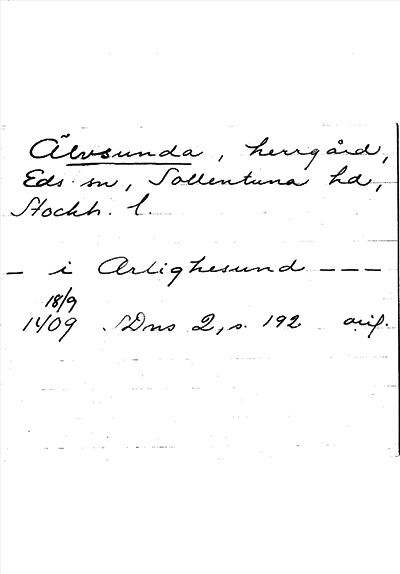 Älvsunda, herrgård,
Eds sn, Sollentuna hd,
Stockh. l.
— i Arlighesund — — —
18/9
1409 SDns 2, s. 192 orig.